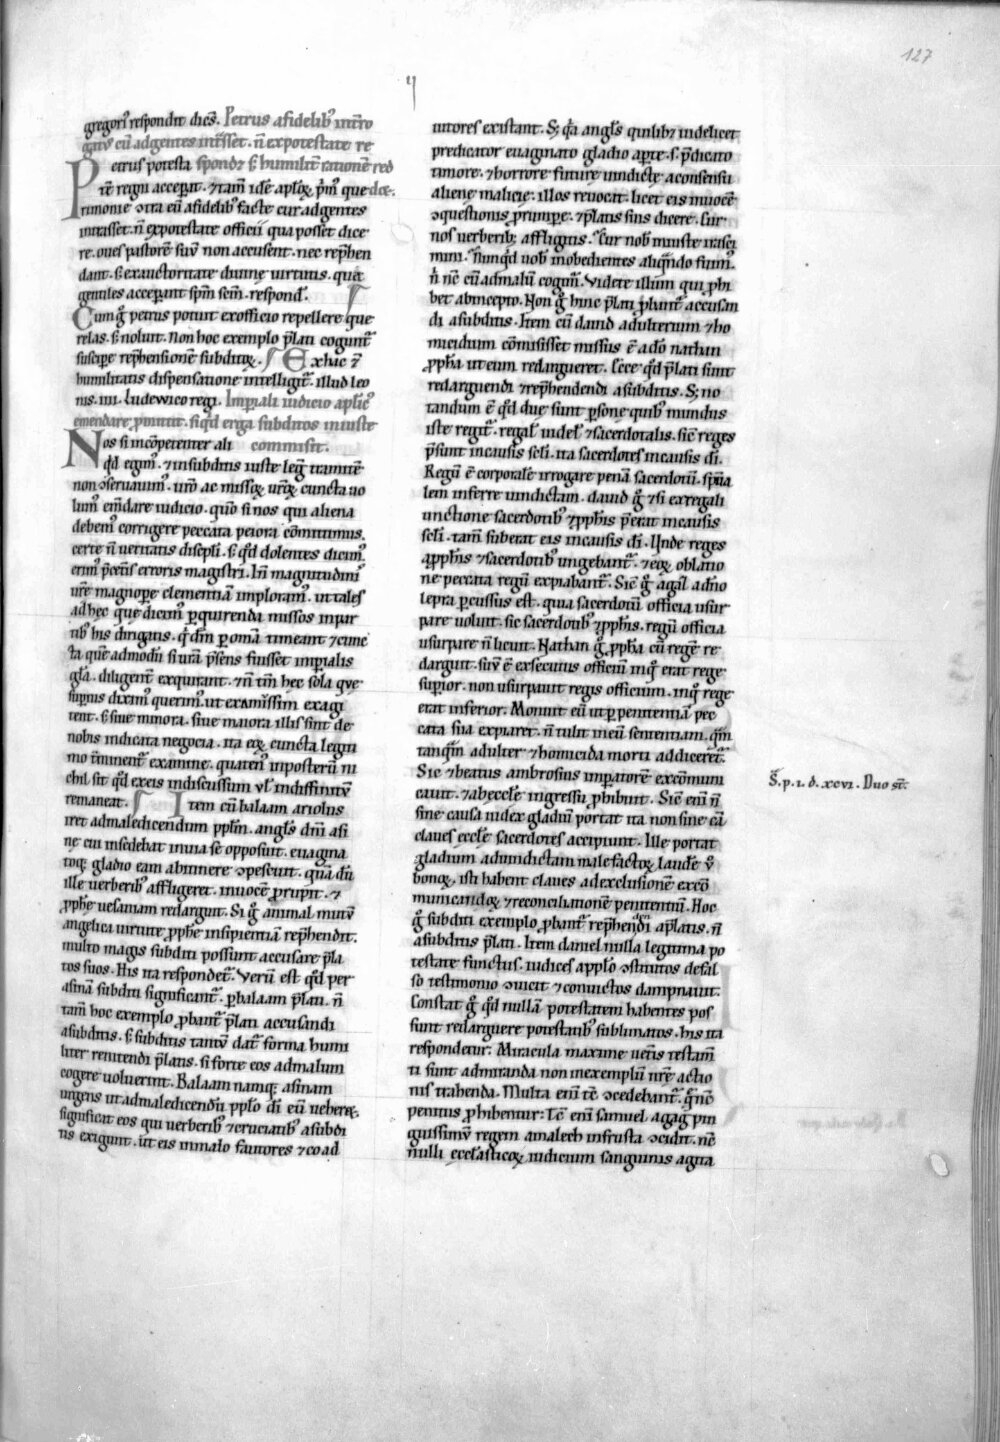 127
ij
gregori᷒ respondit dices̄. Petrus a fidelib᷒ int̄ro
gat᷒ cū ad gentes int̄sset. n̄ ex potestate re
Petrus potesta spondz s; humilit̄ rationē red
tē regni acceperat. ⁊ tam̄ idē ap̄loꝝ p̄m᷒ que dit.
rimonie ꝯtra eū a fidelib᷒ facte cur ad gentes
intrasset. n̄ ex potestate officii qua posset dice
re. oues pastorē suū non accusent. nec rep̄hen
dant. s; ex auctoritate diuinę uirtutis. qua
gentiles acceperunt sp̄m sc̄m. respond̄.
Cum ḡ petrus potuit ex officio repellere que
relas. s; noluit. Non hoc exemplo p̄lati cogunt᷑
suscipe rep̄hensionē subditoꝝ. Ex hac ē
humilitatis dispensatione intelligit᷑. illud leo
nis. iiii. Ludewico regi. Imp̄iali iudicio ap̄lic᷒
emendare ꝓmittit. si qd̄ erga subditos iniuste
Nos si incōpetenter ali commisit.
qd̄ egim᷒. ⁊ in subditis iuste leḡ tramitē
non ꝯseruauim᷒. ur̄o ac missoꝝ ur̄oꝝ cuncta uo
lum᷒ em̄dare iudicio. qm̄ si nos qui aliena
debem᷒ corrigere peccata peiora cōmittimus.
certe n̄ ueritatis discipli. s; qd̄ dolentes dicim᷒
erim᷒ p̄ cet̄is erroris magistri. In̄ magnitudinis
ur̄e magnopere clementiā imploram᷒. ut tales
ad hec que dicim᷒ perquirenda missos in par
tib᷒ his dirigatis. q̄ dm̄ p om̄a timeant ⁊ cunc
ta quē admodū si ur̄a p̄sens fuisset imp̄ialis
gl̄a. diligent̄ exquirant. ⁊ n̄ tm̄ hec sola que
superius dixim᷒ querim᷒. ut examissim exagi
tent. s; siue minora. siue maiora illis sint de
nobis indicata negocia. ita eoꝝ cuncta legiti
mo t̄minent᷑ examine. quaten᷒ in posterū ni
chil sit qd̄ ex eis indiscussum ul̄ indiffinitū
remaneat. Item cū balaam ariolus
iret ad maledicendum pp̄lm. angl̄s dn̄i asi
ne cui insedebat in uia se opposuit. euagina
toq; gladio eam ab itinere ꝯpescuit. quā dū
ille uerberib᷒ affligeret. in uocē prupit. ⁊
ꝓphe uesaniam redarguit. Si ḡ animal mutū
angelica uirtute ꝓphe insipientiā rep̄hendit.
multo magis subditi possunt accusare p̄la
tos suos. His ita respondet᷑. Verū est qd̄ per
asinā subditi significant᷑. p balaam p̄lati. n̄
tam̄ hoc exemplo ꝓbant᷑ p̄lati accusandi
a subditis. s; subditis tantū dat᷑ forma humi
liter renitendi p̄latis. si forte eos ad malum
cogere uoluerint. Balaam namq; asinam
urgens ut ad maledicendū pp̄lo dī eū ueheret.
significat eos qui uerberib᷒ ⁊ cruciatib᷒ a subdi
tis exigunt. ut eis in malo fautores ⁊ coad
iutores existant. S; qa angl̄s quilib; uidelicet
predicator euaginato gladio apte. s. p̄dicato
timore. ⁊ horrore future uindictę a consensu
alienę malicię. illos reuocat. licet eis in uocē
ꝯquestionis prumpe. ⁊ p̄latis suis dicere. Cur
nos uerberib; affligitis. Cur nob᷒ iniuste irasci
mini. Nunqd̄ nob᷒ inobedientes aliqn̄do fuim᷒.
n̄ nc̄ cū ad malū cogim᷒. Videte illum qui ꝓhi
bet ab incepto. Non ḡ hinc p̄lati ꝓbant᷑ accusan
di a subditis. Item cū dauid adulterium ⁊ ho
micidium cōmisisset missus ē a dn̄o nathan
ꝓpha ut eum redargueret. Ecce qd̄ p̄lati sunt
redarguendi ⁊ rep̄hendendi a subditis. S; no
tandum ē qd̄ due sunt psone quib᷒ mundus
iste regit᷑. regal᷒ uidel᷒ ⁊ sacerdotalis. sic̄ reges
p̄sunt in causis sc̄li. ita sacerdotes in causis dī.
Regū ē corporale irrogare penā sacerdotū. sp̄ua
lem inferre uindictam. dauid ḡ ⁊ si ex regali
unctione sacerdotib᷒ ⁊ ꝓphis p̄erat in causis
sc̄li. tam̄ suberat eis in causis dī. Unde reges
a ꝓphis ⁊ sacerdotib᷒ ungebant᷑. ⁊ eoꝝ oblatio
ne peccata regū expiabant᷑. Sic̄ ḡ a gal. a dn̄o
lepra percussus est. quia sacerdotū officia usur
pare uoluit. sic sacerdotib᷒ ⁊ ꝓphis. regū officia
usurpare n̄ licuit. Nathan ḡ ꝓpha cū regē re
darguit. suū ē exsecutus officiū inq᷒ erat rege
superior. non usurpauit regis officium. inq᷒ rege
erat inferior. Monuit eū ut p penitentiā pec
cata sua expiaret. n̄ tulit in eū sententiam. qm̄
tanqm̄ adulter ⁊ homicida morti addiceret᷑.
Sic ⁊ beatus ambrosius imp̄atorē excōmuni
cauit. ⁊ ab eccl̄e ingressu ꝓhibuit. Sic̄ eni n̄
sine causa iudex gladiū portat ita non sine cā
claues eccl̄e sacerdotes accipiunt. Ille portat
gladium ad uindictam malefactoꝝ laudē ū
bonoꝝ. isti habent claues ad exclusionē excō
municandoꝝ ⁊ reconciliationē penitentiū. Hoc
ḡ subditi exemplo ꝓbant᷑ rep̄hendi a p̄latis. n̄
a subditis p̄lati. Item daniel nulla legitima po
testate functus. iudices app̄lo ꝯstitutos de fal
so testimonio ꝯuicit ⁊ conuictos dampnauit.
Constat ḡ qd̄ nullā potestatem habentes pos
sunt redarguere potestatib᷒ sublimatos. his ita
respondetur. Miracula maxime uet̄is testam̄
ti sunt admiranda non in exemplū nr̄e actio
nis trahenda. Multa eni tc̄ ꝯcedebant᷑. q̄ nc̄
penitus ꝓhibentur. Tc̄ eni samuel agag pin
guissimū regem amalech in frusta ꝯcidit. nc̄
nulli ecclesiasticoꝝ iudicium sanguinis agita
S. p. i. d. xcvi. Duo st̄.